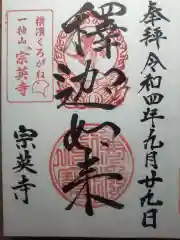 奉拝 令和四年九月廿九日
釋迦如来
横濱くろがね
一袖山 宗英寺
宗英寺